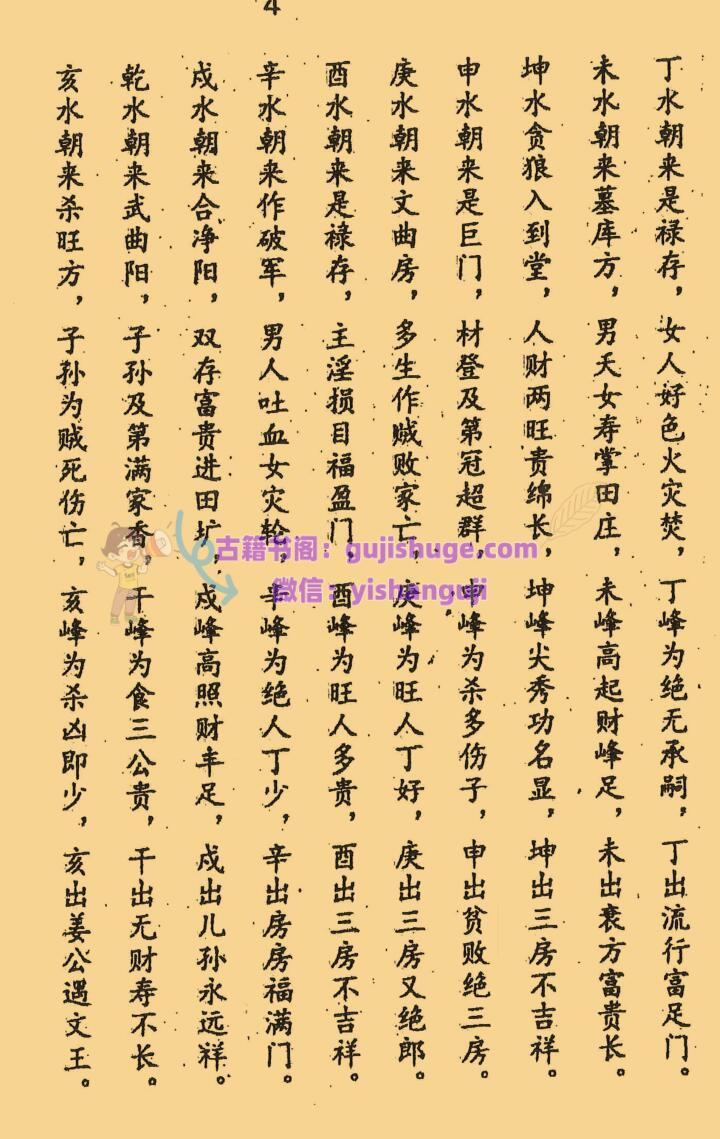 4
丁水朝来是禄存，女人好色火灾焚，丁峰为绝无承嗣，丁出流行富足门。
未水朝来墓库方，男夭女寿掌田庄，未峰高起财峰足，未出衰方富贵长。
坤水贪狼入到堂，人财两旺贵绵长，坤峰尖秀功名显，坤出三房不吉祥。
申水朝来是巨门，材登及第冠超群，申峰为杀多伤子，申出贫败绝三房。
庚水朝来文曲房，多生作贼败家亡，庚峰为旺人丁好，庚出三房又绝郎。
酉水朝来是禄存，主淫损目福盈门，酉峰为旺人多贵，酉出三房不吉祥。
辛水朝来作破军，男人吐血女灾轮，辛峰为绝人丁少，辛出房房福满门。
戍水朝来合净阳，双存富贵进田圹，戍峰高照财丰足，戍出儿孙永远祥。
乾水朝来武曲阳，子孙及第满家香，干峰为食三公贵，干出无财寿不长。
亥水朝来杀旺方，子孙为贼死伤亡，亥峰为杀凶即少，亥出姜公遇文王。
古籍书阁：gujishuge.com
微信：yishanguji